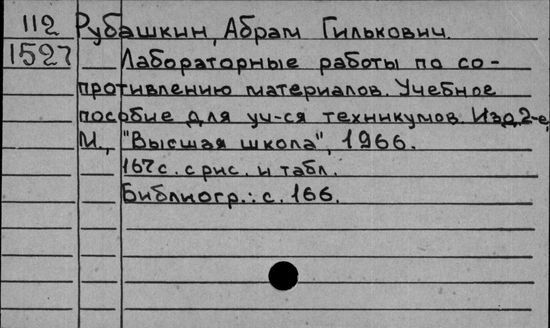 112 Рубашкин, Абрам Гилькович.
1527 Лабораторные работы по со-
противлению материалов. Учебное
пособие для уч-ся техникумов. Изд. 2-е,
М., "Высшая школа", 1966.
167 с. с рис. и табл.
Библиогр.: с. 166.